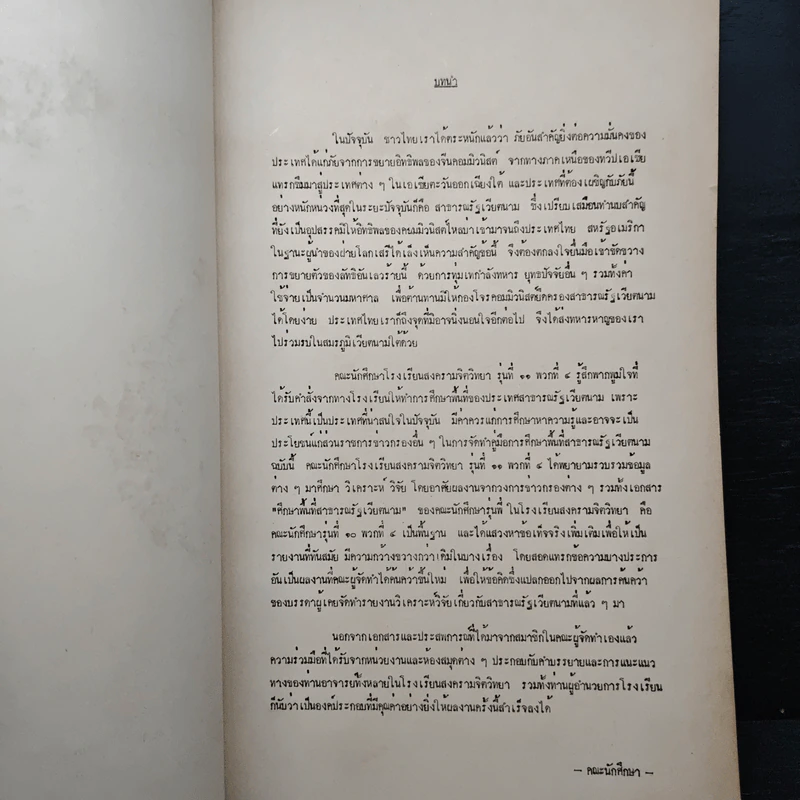 บทนำ
ในปัจจุบัน ชาวไทยเราได้ตระหนักแล้วว่า ภัยอันสำคัญยิ่งต่อความมั่นคงของ
ประเทศได้แก่ภัยจากการขยายอิทธิพลของจีนคอมมิวนิสต์ จากทางภาคเหนือของทวีปเอเซีย
แทรกซึมมาสู่ประเทศต่าง ๆ ในเอเซียตะวันออกเฉียงใต้ และประเทศที่ต้องเผชิญกับภัยนี้
อย่างหนักหน่วงที่สุดในระยะปัจจุบันก็คือ สาธารณรัฐเวียตนาม ซึ่งเปรียบเสมือนทำนบสำคัญ
ที่ยังเป็นอุปสรรคมิให้อิทธิพลของคอมมิวนิสต์ไหลบ่าเข้ามาจนถึงประเทศไทย สหรัฐอเมริกา
ในฐานะผู้นำของฝ่ายโลกเสรีได้เล็งเห็นความสำคัญข้อนี้ จึงต้องตกลงใจยื่นมือเข้าขัดขวาง
การขยายตัวของลัทธิอันเลวร้ายนี้ ด้วยการทุ่มเทกำลังทหาร ยุทธปัจจัยอื่น ๆ รวมทั้งค่า
ใช้จ่ายเป็นจำนวนมหาศาล เพื่อต้านทานมิให้กองโจรคอมมิวนิสต์ยึดครองสาธารณรัฐเวียตนาม
ได้โดยง่าย ประเทศไทยเราก็ถึงจุดที่มิอาจนิ่งนอนใจอีกต่อไป จึงได้ส่งทหารหาญของเรา
ไปร่วมรบในสมรภูมิเวียตนามใต้ด้วย
คณะนักศึกษาโรงเรียนสงครามจิตวิทยา รุ่นที่ ๑๑ พวกที่ ๔ รู้สึกพากพูมใจที่
ได้รับคำสั่งจากทางโรงเรียนให้ทำการศึกษาพื้นที่ของประเทศสาธารณรัฐเวียตนาม เพราะ
ประเทศนี้เป็นประเทศที่น่าสนใจในปัจจุบัน มีค่าควรแก่การศึกษาหาความรู้และอาจจะเป็น
ประโยชน์แก่ส่วนราชการข่าวกรองอื่น ๆ ในการจัดทำคู่มือการศึกษาพื้นที่สาธารณรัฐเวียตนาม
ฉบับนี้ คณะนักศึกษาโรงเรียนสงครามจิตวิทยา รุ่นที่ ๑๑ พวกที่ ๔ ได้พยายามรวบรวมข้อมูล
ต่าง ๆ มาศึกษา วิเคราะห์ วิจัย โดยอาศัยผลงานจากวงการข่าวกรองต่าง ๆ รวมทั้งเอกสาร
"ศึกษาพื้นที่สาธารณรัฐเวียตนาม" ของคณะนักศึกษารุ่นพี่ ในโรงเรียนสงครามจิตวิทยา คือ
คณะนักศึกษารุ่นที่ ๑๐ พวกที่ ๔ เป็นพื้นฐาน และได้แสวงหาข้อเท็จจริงเพิ่มเติมเพื่อให้เป็น
รายงานที่ทันสมัย มีความกว้างขวางกว่าเดิมในบางเรื่อง โดยสอดแทรกข้อความบางประการ
อันเป็นผลงานที่คณะผู้จัดทำได้ค้นคว้าขึ้นใหม่ เพื่อให้ข้อคิดซึ่งแปลกออกไปจากผลการค้นคว้า
ของบรรดาผู้เคยจัดทำรายงานวิเคราะห์วิจัย เกี่ยวกับสาธารณรัฐเวียตนามที่แล้ว ๆ มา
นอกจากเอกสารและประสพการณ์ที่ได้มาจากสมาชิกในคณะผู้จัดทำเองแล้ว
ความร่วมมือที่ได้รับจากหน่วยงานและห้องสมุดต่าง ๆ ประกอบกับคำบรรยายและการแนะแนว
ทางของท่านอาจารย์ทั้งหลายในโรงเรียนสงครามจิตวิทยา รวมทั้งท่านผู้อำนวยการโรงเรียน
ก็นับว่าเป็นองค์ประกอบที่มีคุณค่าอย่างยิ่งให้ผลงานครั้งนี้สำเร็จลงได้
– คณะนักศึกษา –